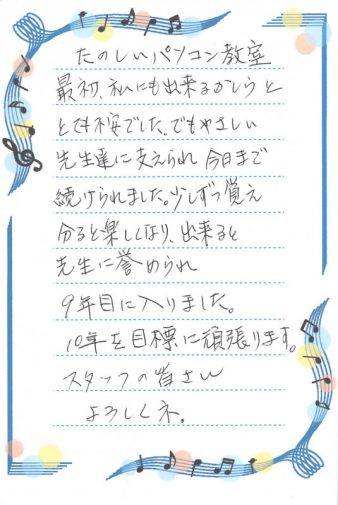 たのしいパソコン教室
最初、私にも出来るかしらと
とても不安でした。でもやさしい
先生達に支えられ今日まで
続けられました。少しずつ覚え
分ると楽しくなり、出来ると
先生に誉められ
9年目に入りました。
10年を目標に頑張ります。
スタッフの皆さん
よろしくネ。